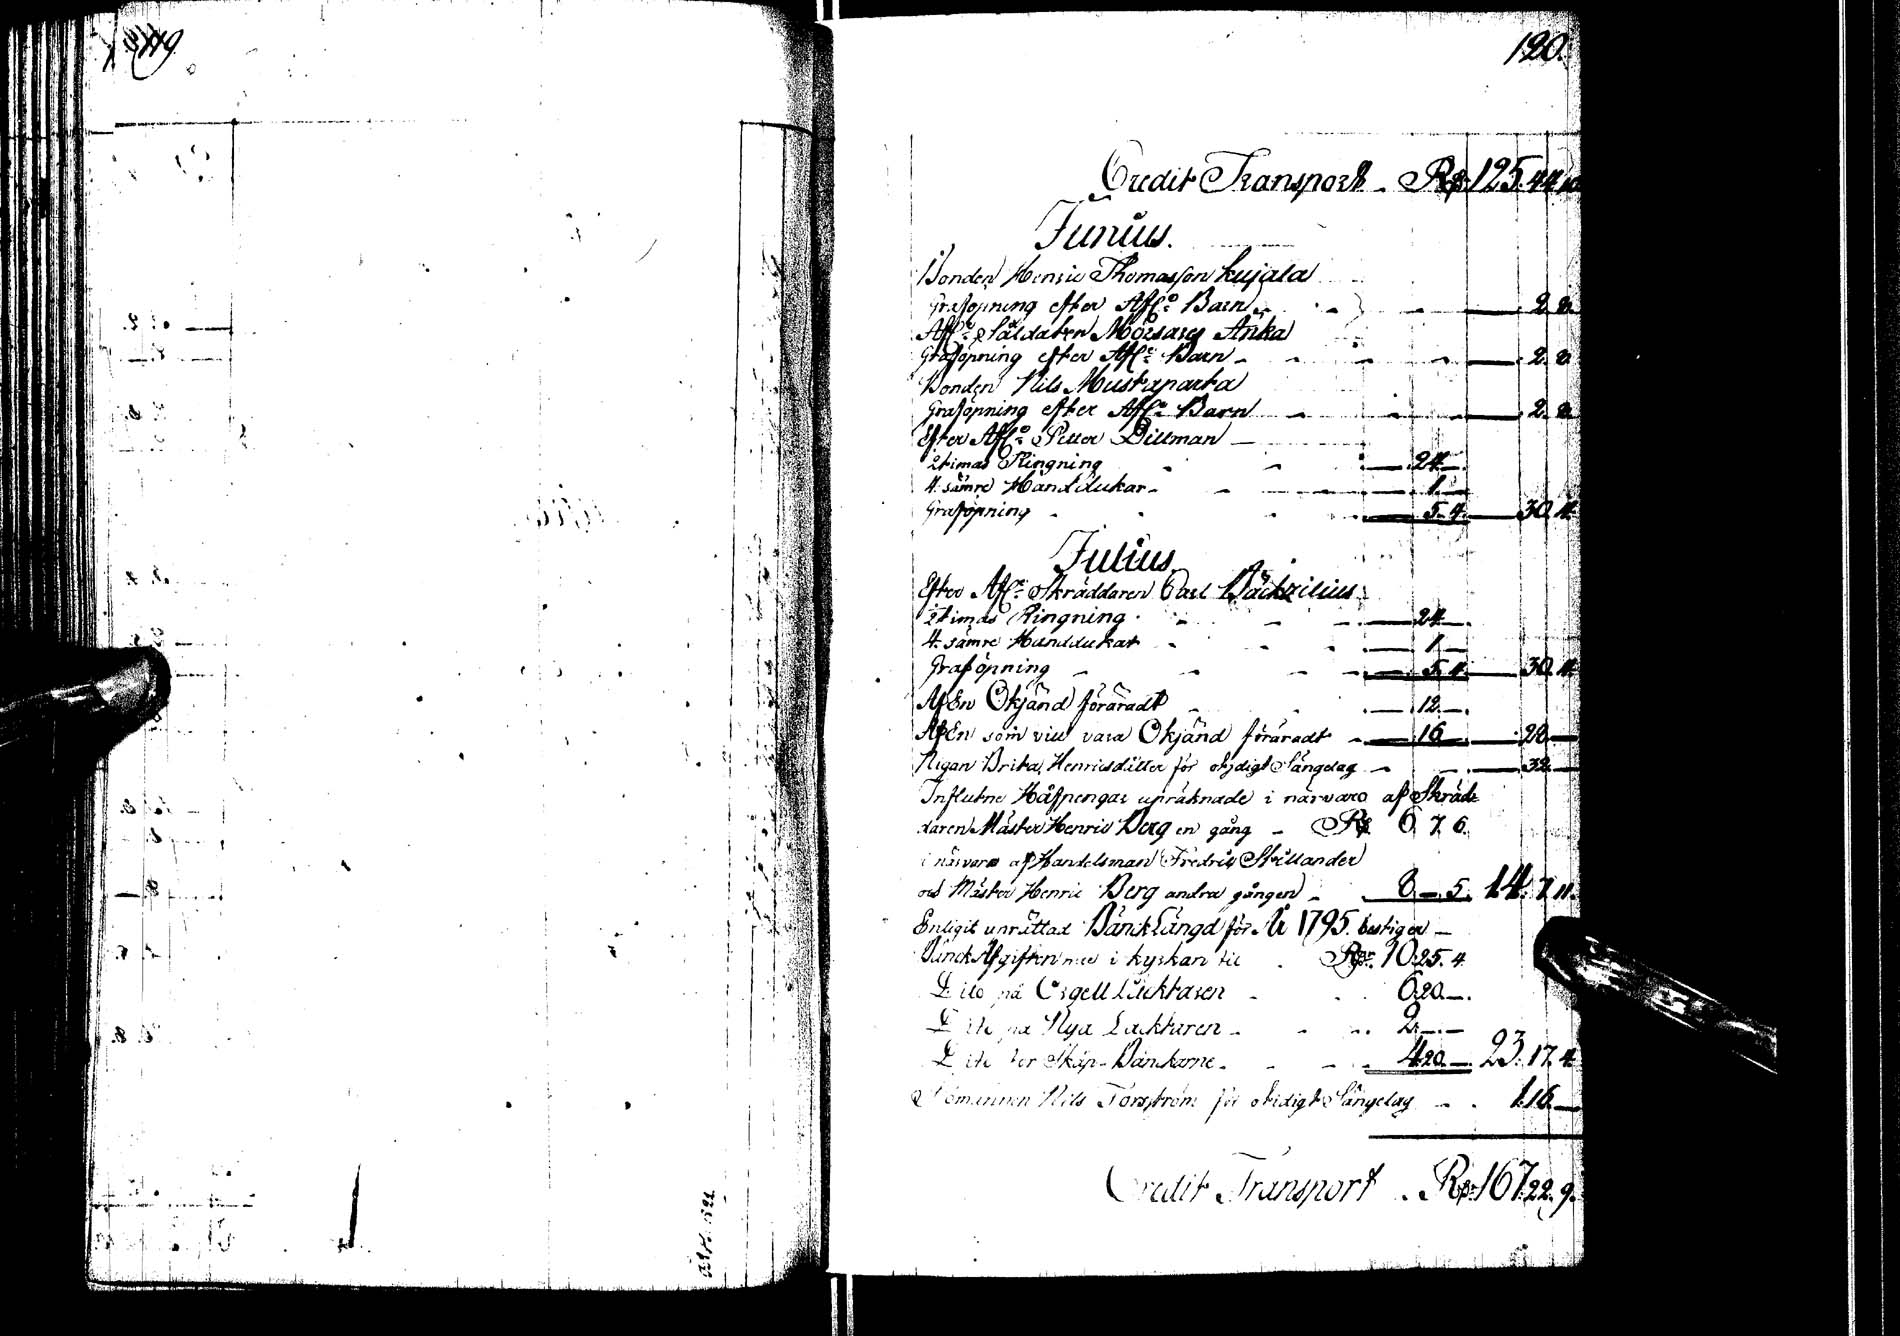 119
120.
Credit Transport - Rd: 125. 44. 10
Junius.
Bonden Henric Thomasson Kujala
Graföpning efter Afl: Barn - 2. 8.
Afl: Såldaten Morsary Anka
Graföpning efter Afl: Barn - 2. 8.
Bonden Nils Mustaparta
Graföpning efter Afl: Barn - 2. 8.
Efter Afl: Petter Dittman -
2 timas Ringning - 24. -
4. sämre Handdukar - 1. -
Graföpning - 5. 4. - 30. 4.
Julius.
Efter Afl: Skräddaren Carl
2 timas Ringning - 24 -
4. sämre Handdukar - 1. -
Graföpning - 5. 4. - 30. 4.
Af En Okjänd föräradt - 12. -
Af En som vill vara Okjänd föräradt - 16 - 28 -
Pigan Brita Henricsdotter för otydigt Sängelag - 32 -
Influtne Håfpengar upräknade i närvaro af Skräd-
daren Mäster Henric Berg en gång - Rd 6. 7. 6.
i närvaro af Handelsman Fredric Skillander
och Mäster Henric Berg andra gången - 8. - 5. 14. 7. 11.
Enligit uprättad Bänck Längd för År 1795. bestiger -
Bänck Afgiften i kyrkan til - Rd: 10. 25. 4
Dito på Orgell Läcktaren - 6. 20. -
Dito på Nya Läcktaren - 2. - -
Dito för Skåp-Bänckarne - 4. 20. - 23. 17. 4.
Nils Forsström för otidigt Sängelag - 1. 16. -
Credit Transport - Rd: 167. 22. 9.